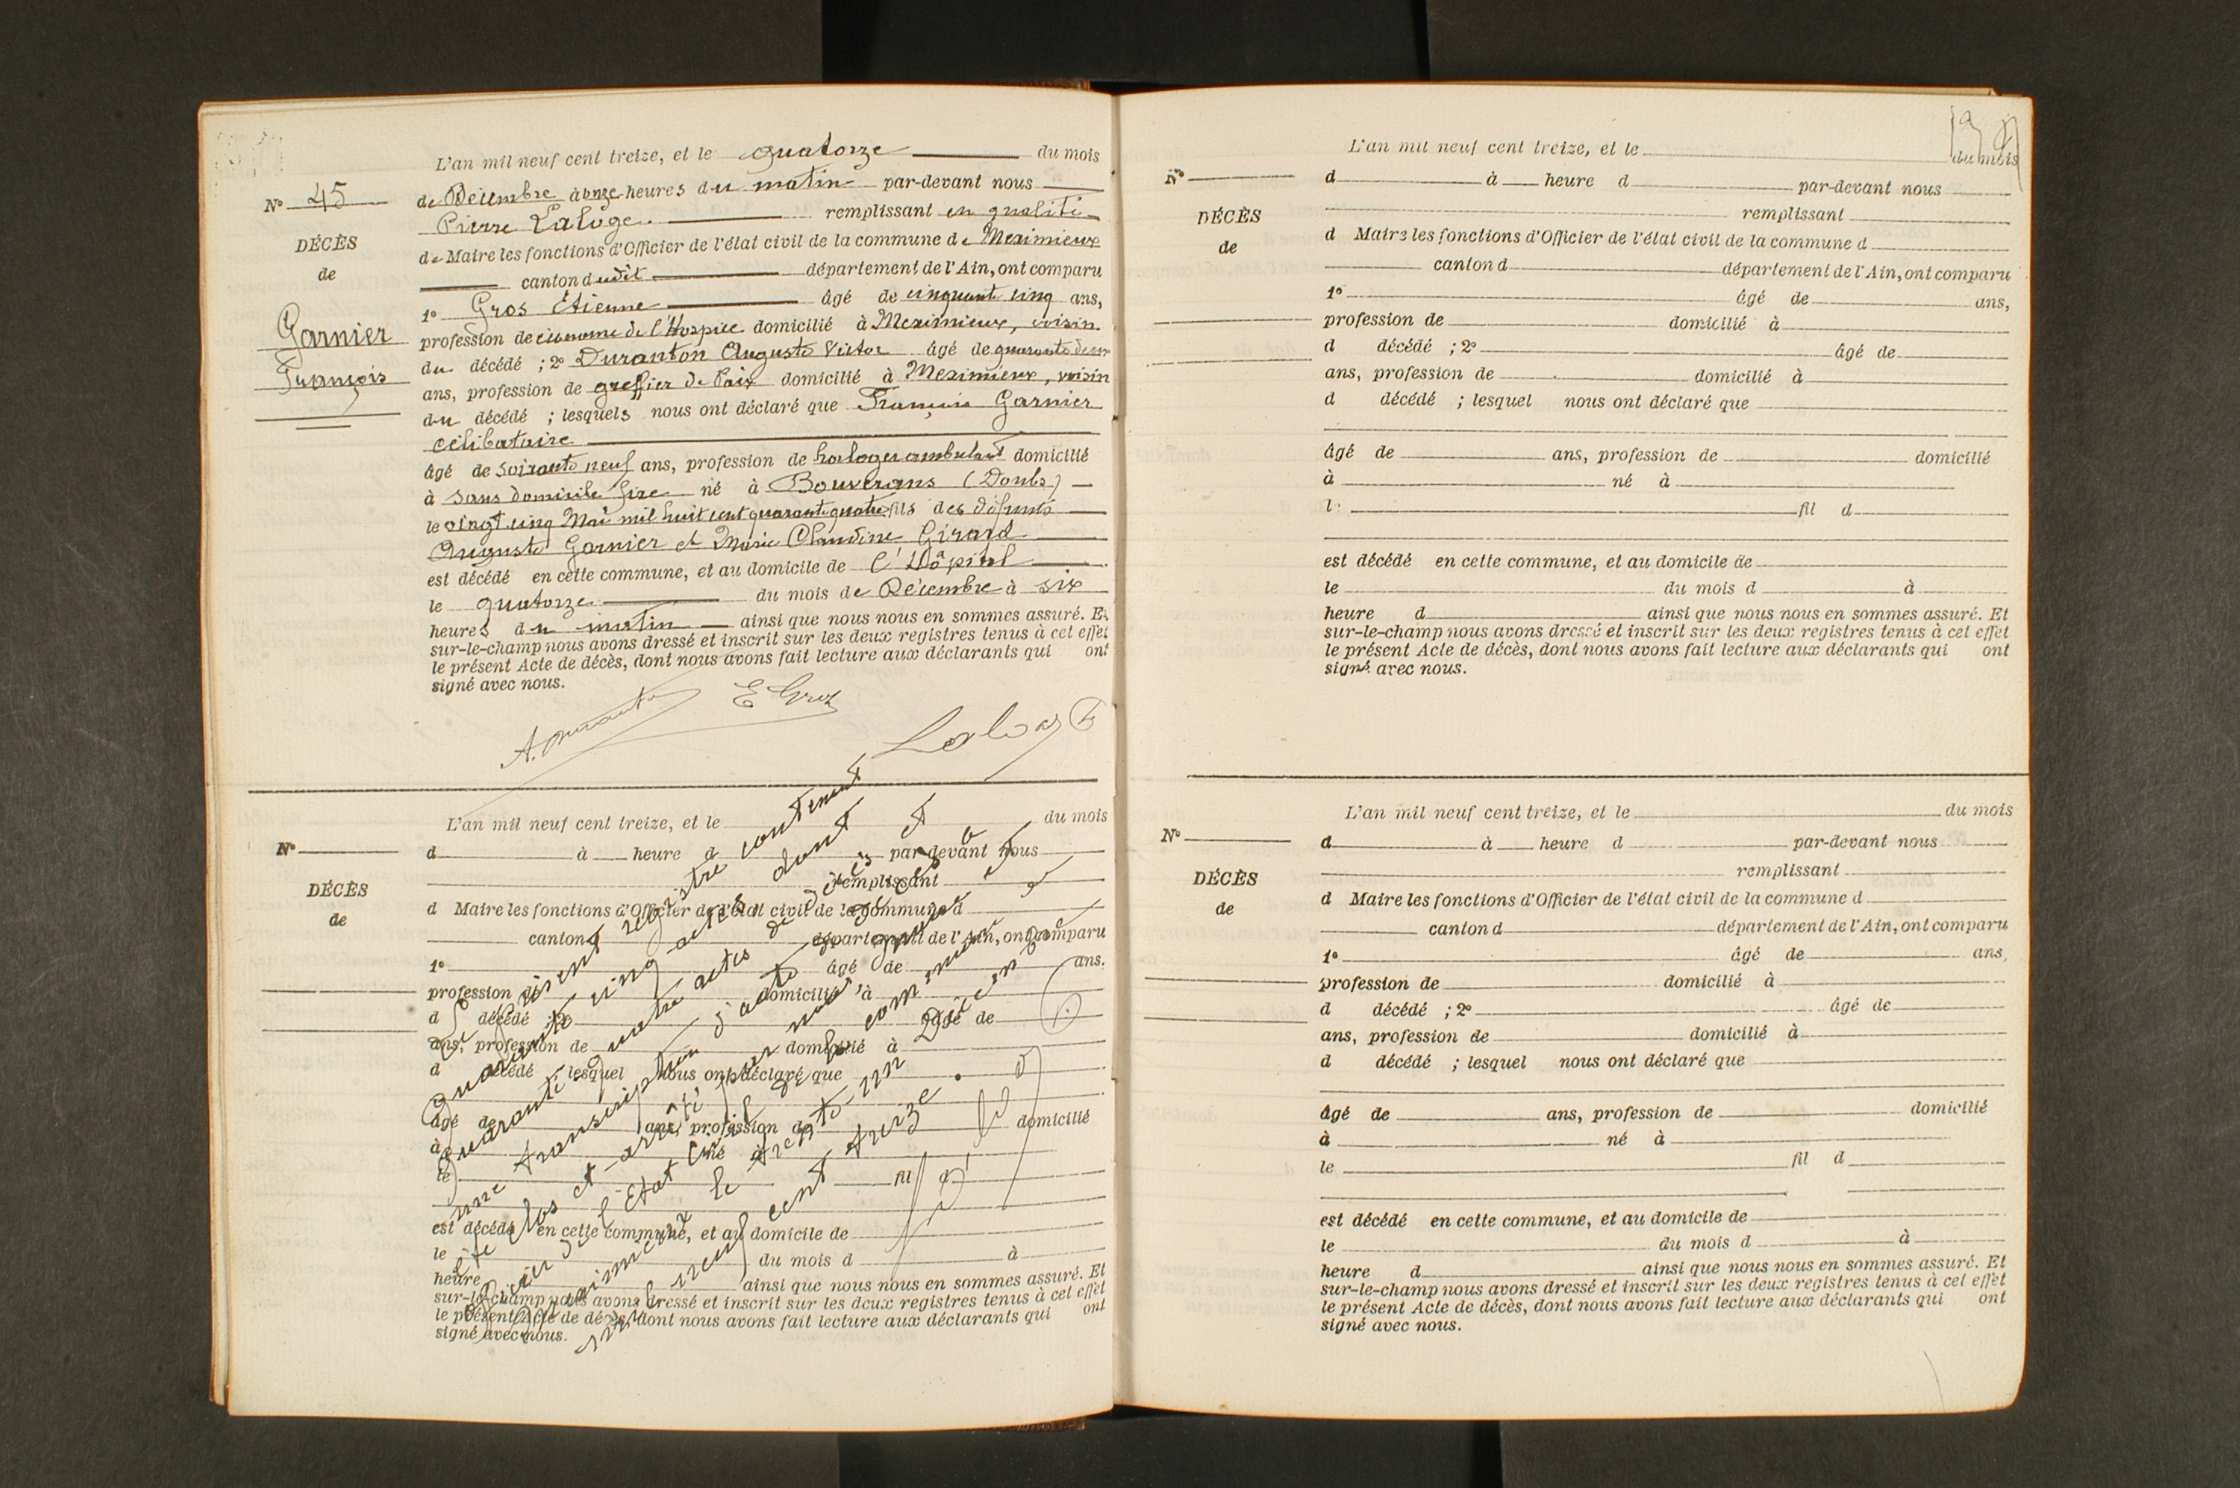 N° 45
DÉCÈS
de
Garnier
François
L'an mil neuf cent treize, et le quatorze du mois
de Décembre à onze heures du matin par-devant nous
Pierre Laloge remplissant en qualité
de Maire les fonctions d'Officier de l'état civil de la commune de Meximieux
canton dudit département de l'Ain, ont comparu
1° Gros Etienne âgé de cinquante cinq ans,
profession de économe de l'Hospice domicilié à Meximieux, voisin
du décédé ; 2° Duranton Auguste Victor âgé de quarante deux
ans, profession de greffier de Paix domicilié à Meximieux, voisin
du décédé ; lesquels nous ont déclaré que François Garnier
célibataire
âgé de soixante neuf ans, profession de horloger ambulant domicilié
à sans domicile fixe né à Bouverans (Doubs)
le vingt cinq Mai mil huit cent quarante quatre fils des défunts
Auguste Garnier et Marie Claudine Girard
est décédé en cette commune, et au domicile de l'Hôpital
le quatorze du mois de Décembre à six
heures du matin ainsi que nous nous en sommes assuré. Et
sur-le-champ nous avons dressé et inscrit sur les deux registres tenus à cet effet
le présent Acte de décès, dont nous avons fait lecture aux déclarants qui ont
signé avec nous.
A. Duranton E Gros
Laloge
N°
DÉCÈS
de
L'an mil neuf cent treize, et le du mois
d à heure d par-devant nous
remplissant
d Maire les fonctions d'Officier de l'état civil de la commune d
canton d département de l'Ain, ont comparu
1° âgé de ans.
profession de domicilié à
d décédé ; 2° âgé de
ans, profession de domicilié à
d décédé ; lesquel nous ont déclaré que
âgé de ans, profession de domicilié
à né à
le fil d
est décédé en cette commune, et au domicile de
le du mois d à
heure ainsi que nous nous en sommes assuré. Et
sur-le-champ nous avons dressé et inscrit sur les deux registres tenus à cet effet
le présent Acte de décès, dont nous avons fait lecture aux déclarants qui ont
signé avec nous.
Le présent registre contenant
quarante cinq actes, dont
quarante quatre actes de décès et
une transcription d'acte de décès a
été clos et arrêté par nous, maire et
officier de l'Etat Civil de la commune de
Meximieux le trente-un Décembre
mil neuf cent treize.
L'an mil neuf cent treize, et le du mois
N°
DÉCÈS
de
d à heure d par-devant nous
remplissant
d Maire les fonctions d'Officier de l'état civil de la commune d
canton d département de l'Ain, ont comparu
1° âgé de ans,
profession de domicilié à
d décédé ; 2° âgé de
ans, profession de domicilié à
d décédé ; lesquel nous ont déclaré que
âgé de ans, profession de domicilié
à né à
l fil d
est décédé en cette commune, et au domicile de
le du mois d à
heure d ainsi que nous nous en sommes assuré. Et
sur-le-champ nous avons dressé et inscrit sur les deux registres tenus à cet effet
le présent Acte de décès, dont nous avons fait lecture aux déclarants qui ont
signé avec nous.
L'an mil neuf cent treize, et le du mois
N°
DÉCÈS
de
d à heure d par-devant nous
remplissant
d Maire les fonctions d'Officier de l'état civil de la commune d
canton d département de l'Ain, ont comparu
1° âgé de ans,
profession de domicilié à
d décédé ; 2° âgé de
ans, profession de domicilié à
d décédé ; lesquel nous ont déclaré que
âgé de ans, profession de domicilié
à né à
le fil d
est décédé en cette commune, et au domicile de
le du mois d à
heure d ainsi que nous nous en sommes assuré. Et
sur-le-champ nous avons dressé et inscrit sur les deux registres tenus à cet effet
le présent Acte de décès, dont nous avons fait lecture aux déclarants qui ont
signé avec nous.